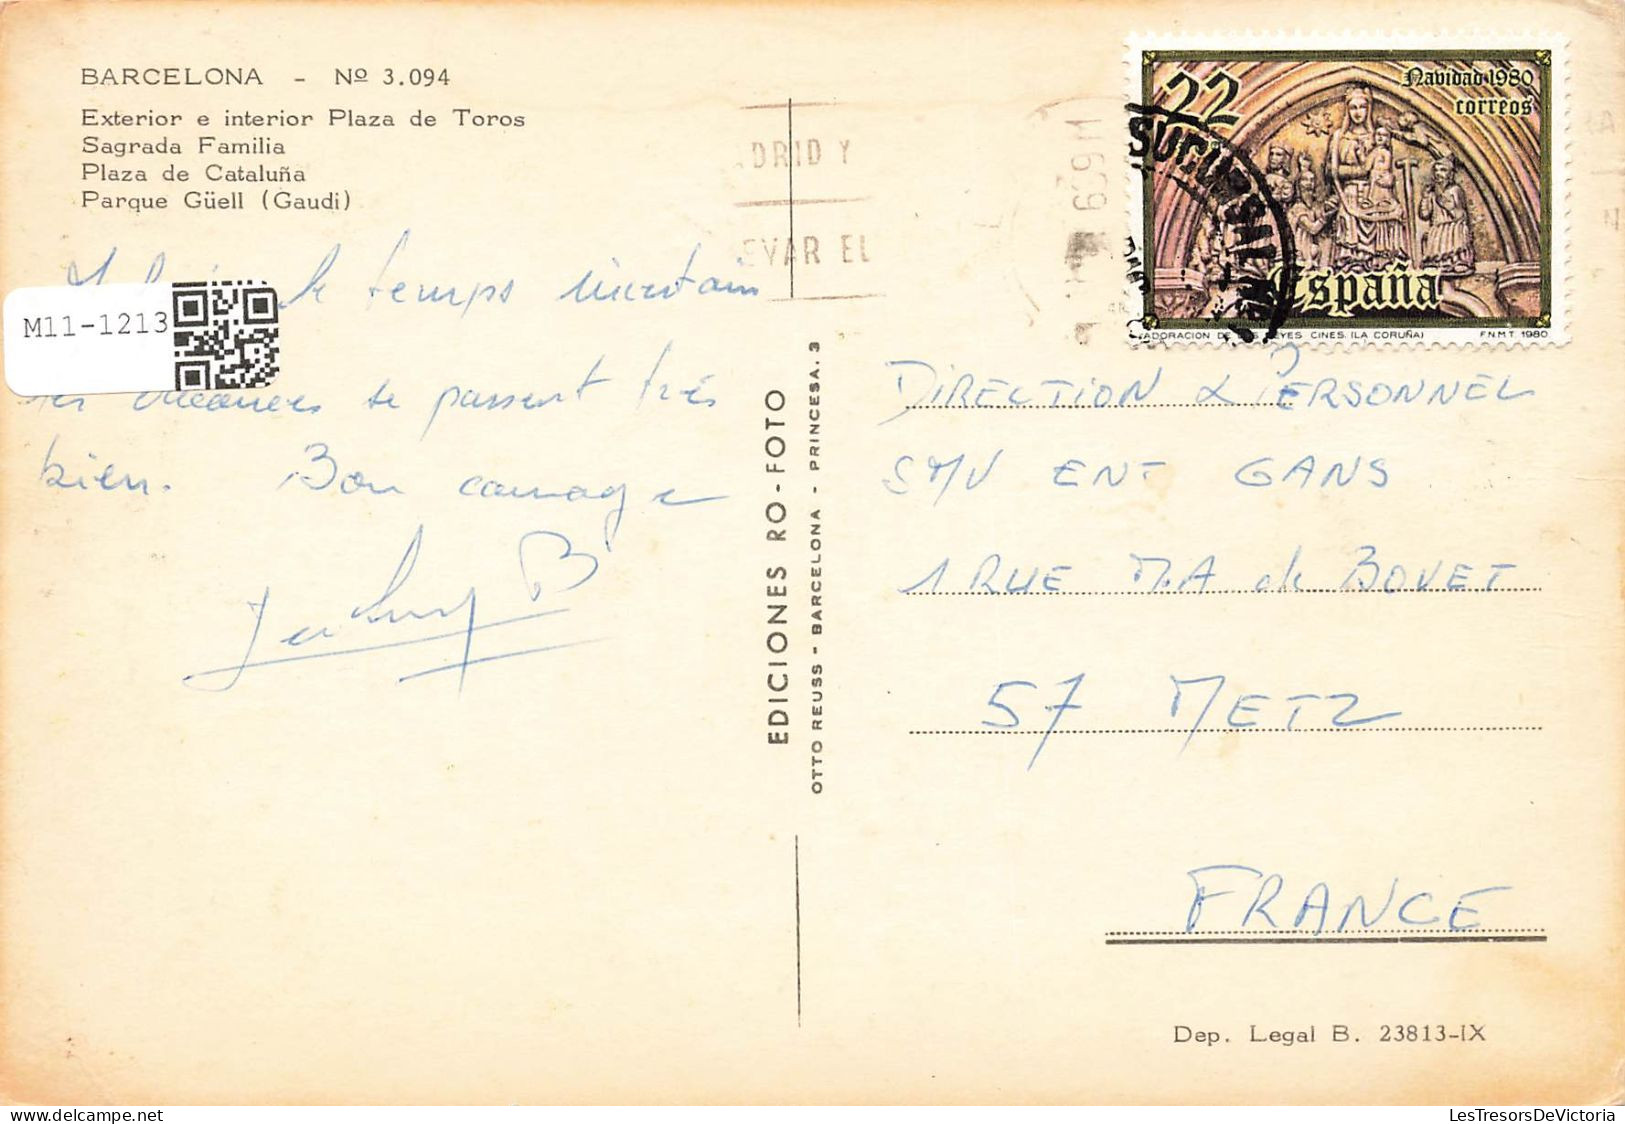 BARCELONA - Nº 3.094
Exterior e interior Plaza de Toros
Sagrada Familia
Plaza de Cataluña
Parque Güell (Gaudi)
le temps incertain
M11-1213
se passent très
bien. Bon courage
EDICIONES RO-FOTO
OTTO REUSS - BARCELONA - PRINCESA. 3
DRID Y
EVAR EL
22
Navidad 1980
correos
España
F.N.M.T. 1980
SUCURSAL
DIRECTION & PERSONNEL
SMV ENT GANS
1 RUE M.A de BOVET
57 METZ
FRANCE
Dep. Legal B. 23813-IX
LesTresorsDeVictoria